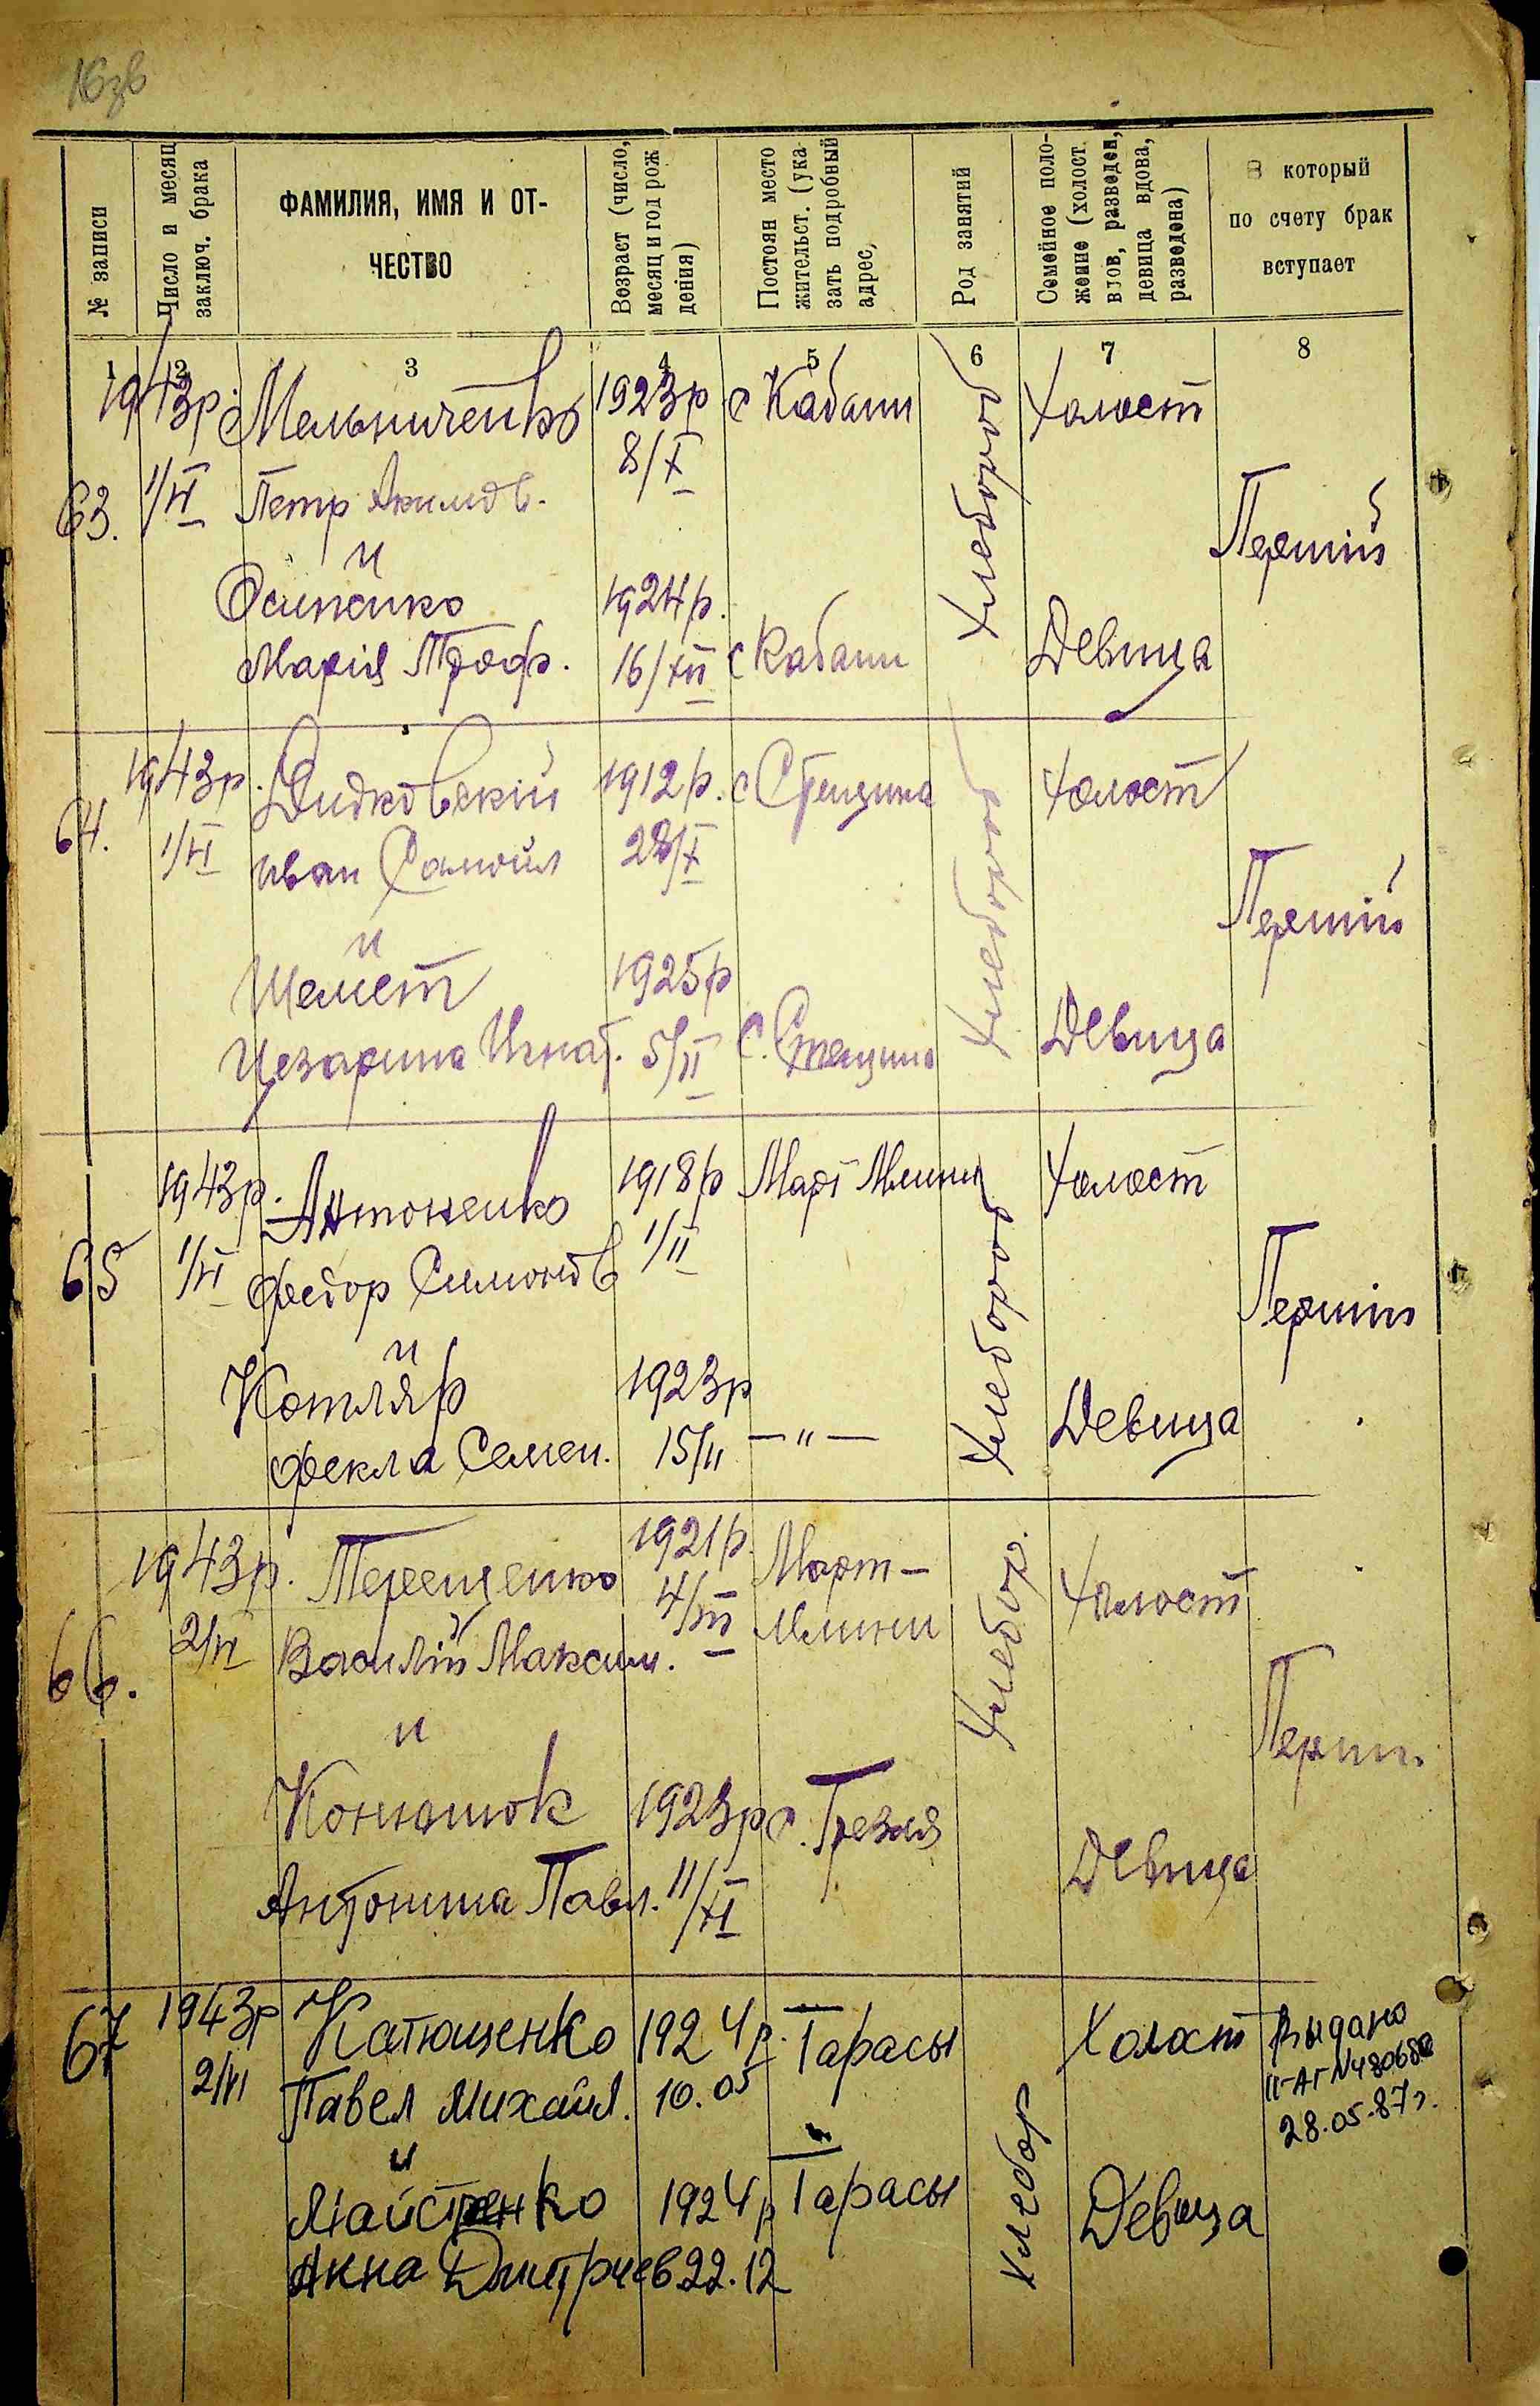 16зв
№ записи
Число и месяц
заключ. брака
ФАМИЛИЯ, ИМЯ И ОТ-
ЧЕСТВО
Возраст (число,
месяц и год рож
дения)
Постоян место
жительст. (ука-
зать подробный
адрес,
Род занятий
Семейное поло-
жение (холост.
вдов, разведен,
девица вдова,
разведена)
В который
по счету брак
вступает
1 2 3 4 5 6 7 8
1943р. Мельниченко 1923р. с Кабани Хлебороб Холост
63. 1/VI Петр Якимов. 8/X
Перший
и
Осипенко 1924р.
Марія Троф. 16/XII с Кабани Девица
1943р. Дидковскій 1912р. с Стещина Хлебороб Холост
64. 1/VI Иван Самойл 28/X
Перший
и
Шемет 1925р
Цезарина Игнат. 5/II с. Стещина Девица
1943р. Антоненко 1918р Март Млини Хлебороб Холост
65 1/VI Федор Симонов 1/II
Перший
и
Котляр 1923р
Фекла Семен. 15/II — " — Девица
1943р. Терещенко 1921р. Март- Хлебор. Холост
66. 2/VI Василій Максим. 4/III Млини
Перши.
и
Конюшок 1923р с. Грезля
Антонина Павл. 11/XI Девица
67 1943р Катющенко 1924р. Тарасы Хлебор Холост Выдано
2/VI Павел Михайл. 10.05 II-АГ №480680
28.05.87г.
и
Майстренко 1924р Тарасы Девица
Анна Дмитриев 22.12